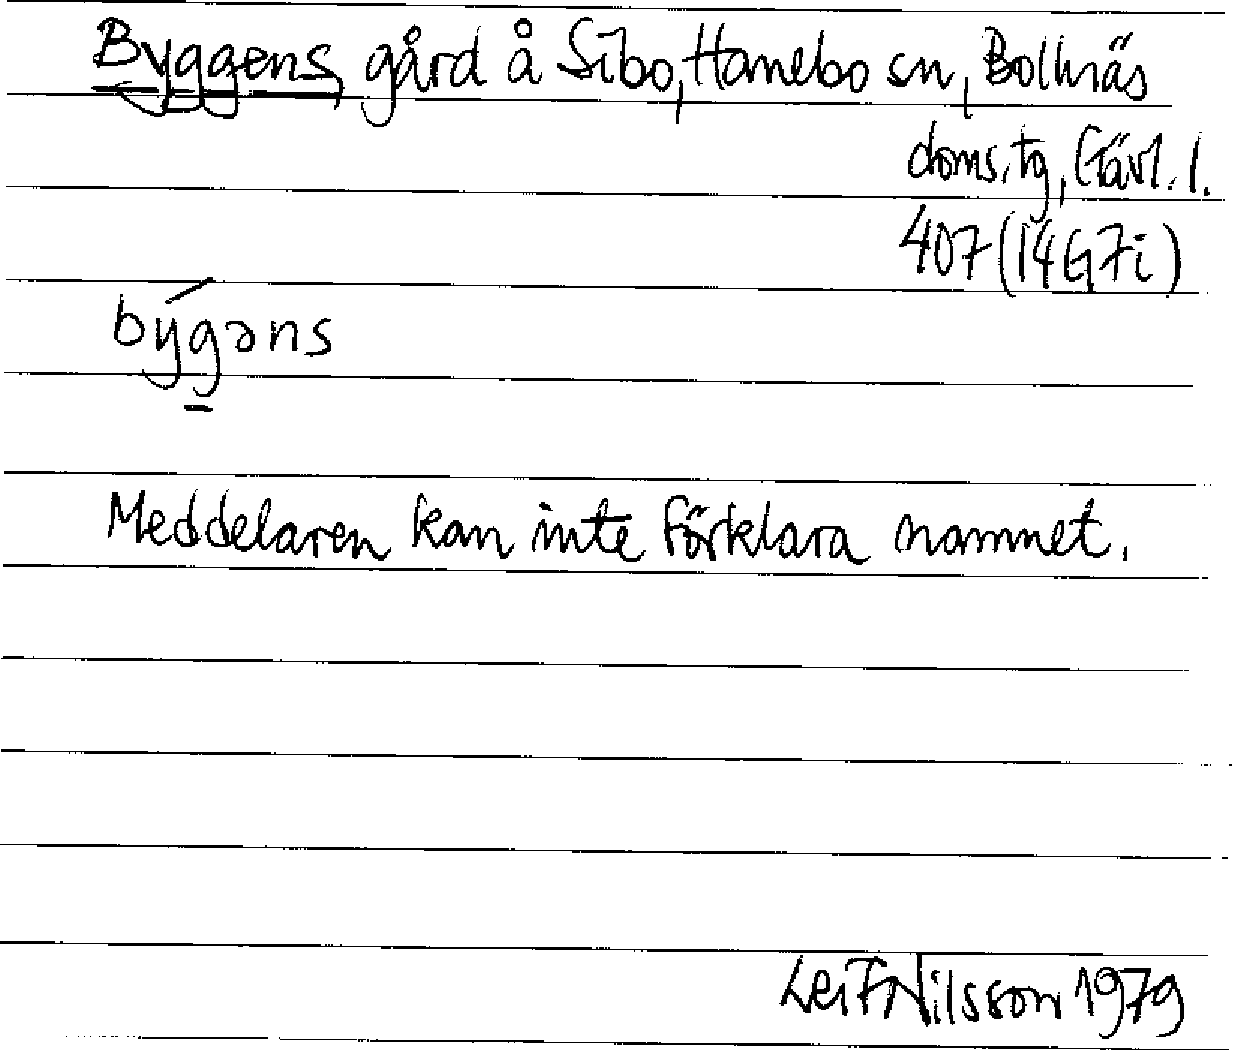 Byggens, gård å Sibo, Hanebo sn, Bollnäs
doms. tg, Gävl. l.
407 (14G7i)
býgəns
Meddelaren kan inte förklara namnet.
Leif Nilsson 1979